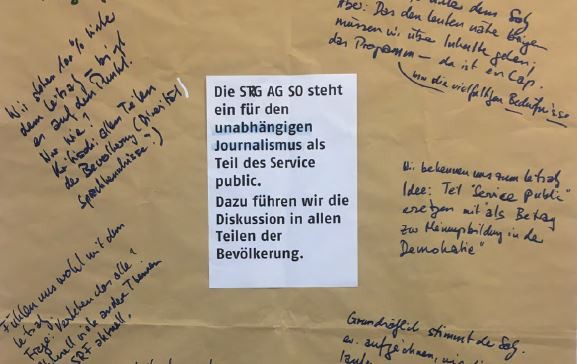 Die SRG AG SO steht
ein für den
unabhängigen
Journalismus als
Teil des Service
public.
Dazu führen wir die
Diskussion in allen
Teilen der
Bevölkerung.
Wir stehen 100% hinter
dem Leitsatz bringt
es auf den Punkt.
Wo wie?
allen Teilen
der Bevölkerung (Diversität,
Sprachkenntnisse?)
dem Satz
Aber: Das den Leuten nahe bringen
müssen wir über Inhalte gehen,
das Programm – da ist en Gap.
um die vielfältigen Bedürfnisse
Wir bekennen uns zum Leitsatz
Idee: Teil "Service public"
ersetzen mit "als Beitrag
zur Meinungsbildung in der
Demokratie"
Fühlen uns wohl mit dem
Leitsatz.
Frage: Verstehen das alle?
viele andere Themen
SRF aktuell.
Grundsätzlich stimmt der Satz.
aufzeichnen, wie